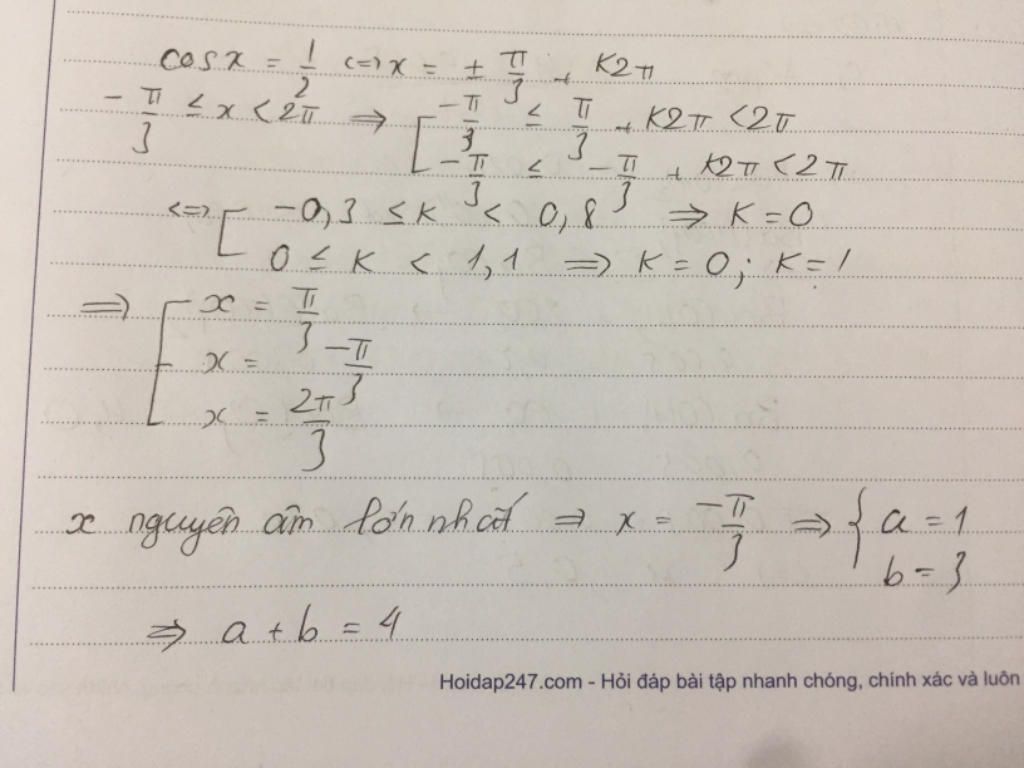 cosx = 1/2 <=> x = ± π/3 + K2π
-π/3 ≤ x < 2π => [ -π/3 ≤ π/3 + K2π < 2π
-π/3 ≤ -π/3 + K2π < 2π
<=> [ -0,3 ≤ K < 0,8 => K = 0
0 ≤ K < 1,1 => K = 0; K = 1
=> [ x = π/3
x = -π/3
x = 2π/3
x nguyên âm lớn nhất => x = -π/3 => { a = 1
b = 3
=> a + b = 4
Hoidap247.com - Hỏi đáp bài tập nhanh chóng, chính xác và luôn